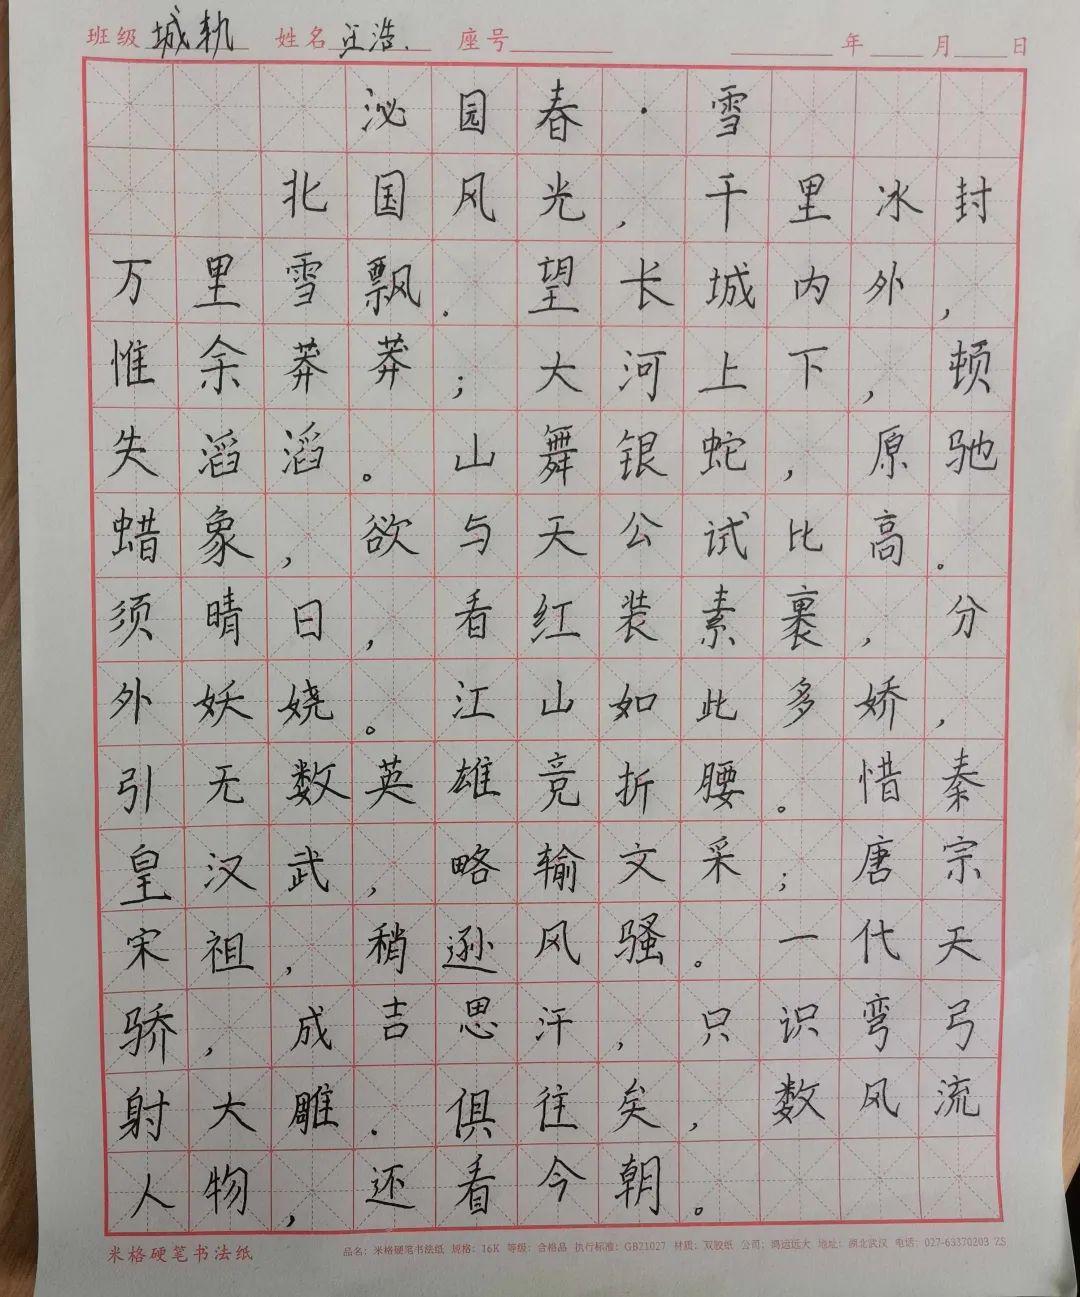 班级 城轨 姓名 汪浩. 座号 年 月 日
泌园春·雪
北国风光，千里冰封
万里雪飘．望长城内外，
惟余莽莽；大河上下，顿
失滔滔。山舞银蛇，原驰
蜡象，欲与天公试比高。
须晴日，看红装素裹，分
外妖娆。江山如此多娇，
引无数英雄竞折腰。惜秦
皇汉武，略输文采；唐宗
宋祖，稍逊风骚。一代天
骄，成吉思汗，只识弯弓
射大雕．俱往矣，数风流
人物，还看今朝。
米格硬笔书法纸 品名：米格硬笔书法纸 规格：16K 等级：合格品 执行标准：GB21027 材质：双胶纸 公司：鸿运远大 地址：湖北武汉 电话：027-63370203 ZS